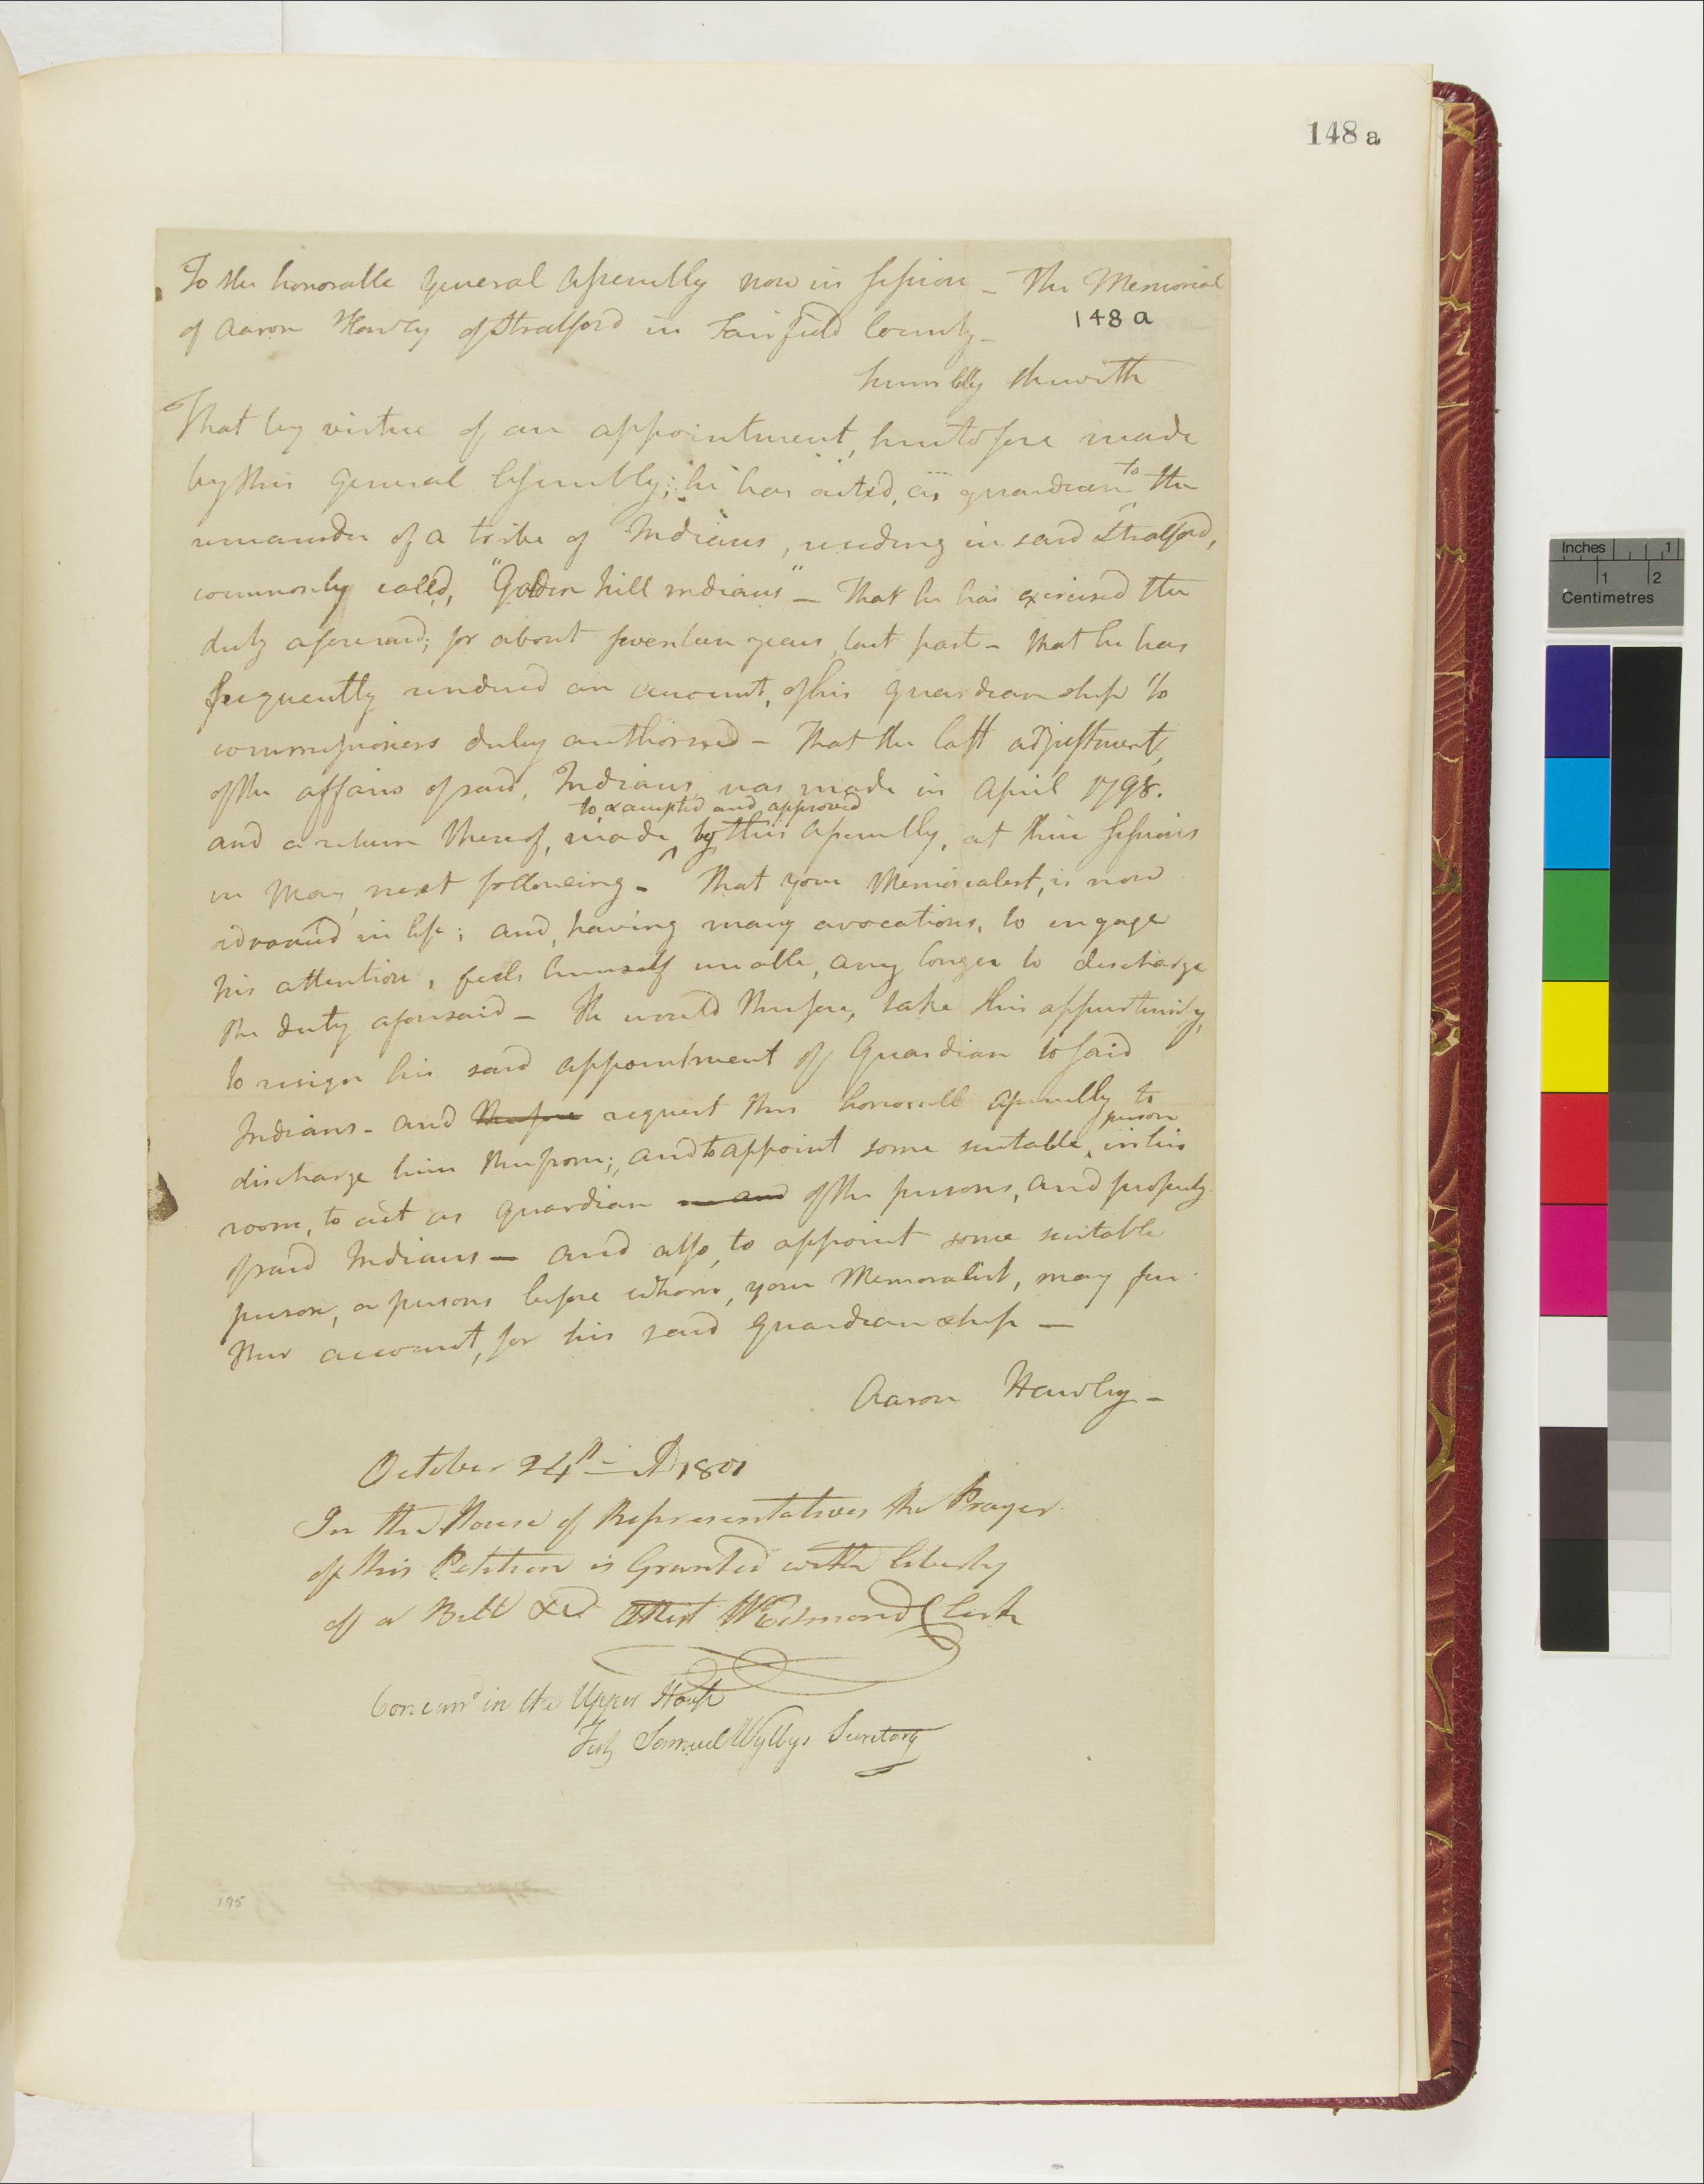 148 a
To the honorable General Assembly now in session – The Memorial
of Aaron Hawley of Stratford in Fairfield County –
148 a
humbly sheweth
That by virtue of an appointment, heretofore made
by this General Assembly; he has acted, as guardian to the
remainder of a tribe of Indians, residing in said Stratford,
commonly called, "Golden hill indians" – That he has exercised the
duty aforesaid; for about seventeen years, last past – that he has
frequently rendered an account, of his guardianship to
commissioners duly authorised – That the last adjustment,
of the affairs of said, Indians, was made in April 1798.
to & accepted and approved
and a return thereof, made, by this Assembly, at their sessions
in May, next following – That your Memorialist, is now
advanced in life; and, having many avocations, to engage
his attention, feels himself unable, any longer to discharge
the duty aforesaid – He would therefore, take this oppertunity,
to resign his said appointment of Guardian to said
Indians – and therefore request this honorable assembly to
discharge him therefrom; and to appoint some suitable person in his
room, to act as guardian of the persons, and property
of said Indians – and also, to appoint some suitable
person, or persons before whom, your Memoralist, may fur-
ther account, for his said guardianship –
Aaron Hawley –
October 24th AD 1801
In the House of Representatives the Prayer
of this Petition is Granted with liberty
of a Bill &c Attest W Edmond Clerk
Concurrd in the Upper House
Test Samuel Wyllys Secretary
195
Inches 1
1 2
Centimetres